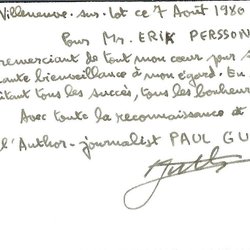 Villeneuve-sur-Lot ce 7 Août 1980
Pour Mr. ERIK PERSSON
remerciant de tout mon cœur pour s
bienveillance à mon égard. En
tous les succès, tous les bonheur
Avec toute la reconnaissance de
l'Author-journalist PAUL GU